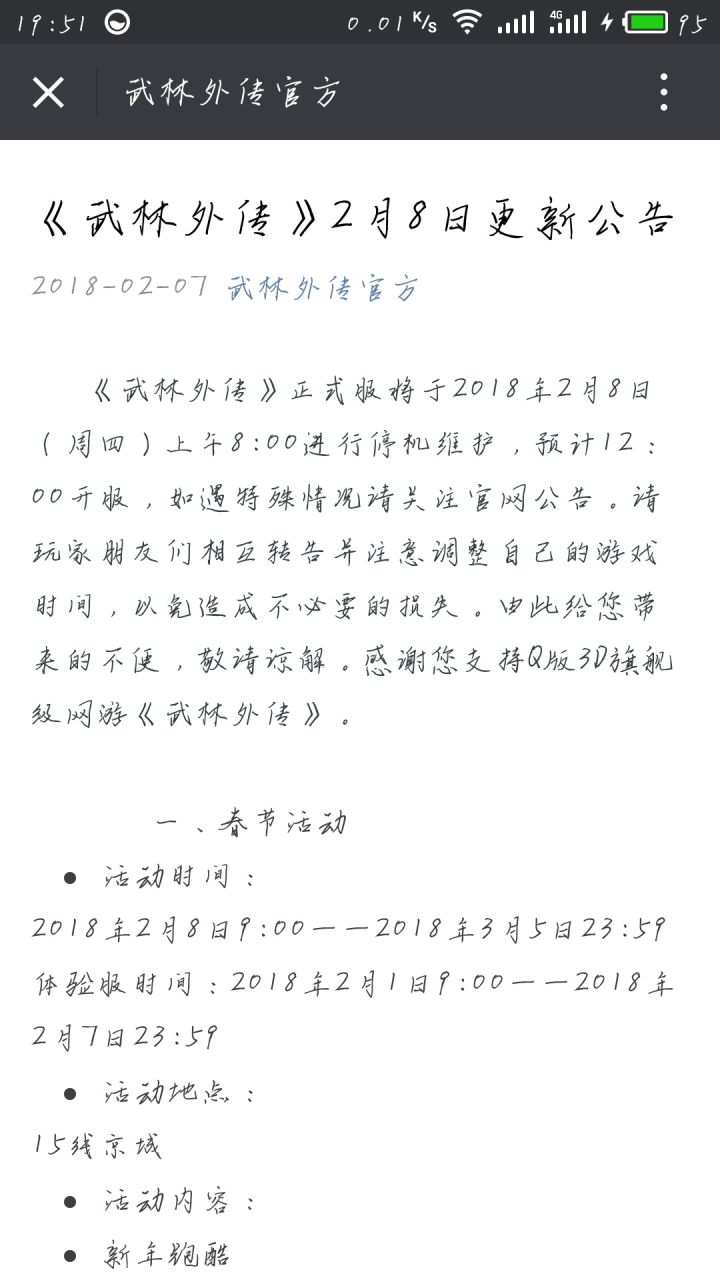 19:51 0.01 K/s 4G 95
武林外传官方
《武林外传》2月8日更新公告
2018-02-07 武林外传官方
《武林外传》正式服将于2018年2月8日
(周四)上午8:00进行停机维护,预计12:
00开服,如遇特殊情况请关注官网公告。请
玩家朋友们相互转告并注意调整自己的游戏
时间,以免造成不必要的损失。由此给您带
来的不便,敬请谅解。感谢您支持Q版3D旗舰
级网游《武林外传》。
一、春节活动
● 活动时间:
2018年2月8日9:00——2018年3月5日23:59
体验服时间:2018年2月1日9:00——2018年
2月7日23:59
● 活动地点:
15线京城
● 活动内容:
● 新年跑酷